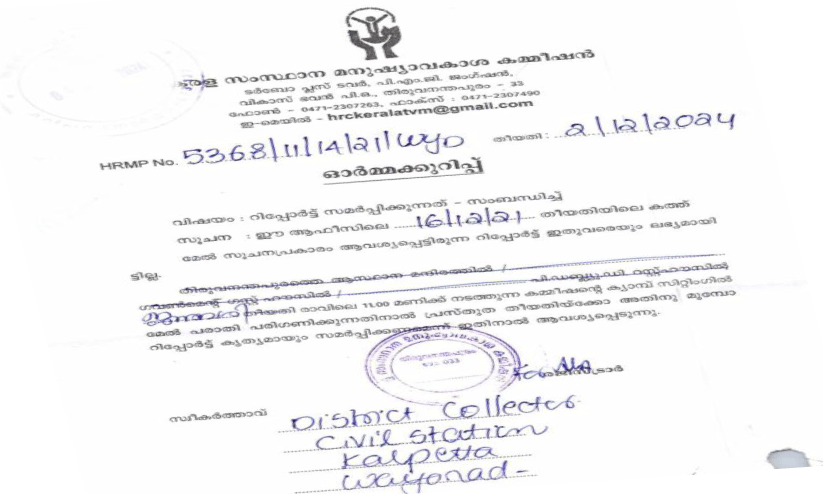 കേരള സംസ്ഥാന മനുഷ്യാവകാശ കമ്മീഷൻ
ടർബോ പ്ലസ് ടവർ, പി.എം.ജി. ജംഗ്ഷൻ,
വികാസ് ഭവൻ പി.ഒ., തിരുവനന്തപുരം - 33
ഫോൺ - 0471-2307263, ഫാക്സ് : 0471-2307490
ഇ-മെയിൽ - hrckeralatvm@gmail.com
HRMP No. 5368/11/14/21/Wyd തീയതി : 2/12/2024
ഓർമ്മക്കുറിപ്പ്
വിഷയം : റിപ്പോർട്ട് സമർപ്പിക്കുന്നത് – സംബന്ധിച്ച്
സൂചന : ഈ ആഫീസിലെ 16/12/21 തീയതിയിലെ കത്ത്
മേൽ സൂചനപ്രകാരം ആവശ്യപ്പെട്ടിരുന്ന റിപ്പോർട്ട് ഇതുവരെയും ലഭ്യമായി
ട്ടില്ല.
തിരുവനന്തപുരത്തെ ആസ്ഥാന മന്ദിരത്തിൽ /
ഗവൺമെന്റ് ഗസ്റ്റ് ഹൗസിൽ / പി.ഡബ്ല്യു.ഡി റസ്റ്റ്ഹൗസിൽ
തീയതി രാവിലെ 11.00 മണിക്ക് നടത്തുന്ന കമ്മീഷന്റെ ക്യാമ്പ് സിറ്റിംഗിൽ
മേൽ പരാതി പരിഗണിക്കുന്നതിനാൽ പ്രസ്തുത തീയതിയ്ക്കോ അതിനു മുമ്പോ
റിപ്പോർട്ട് കൃത്യമായും സമർപ്പിക്കണമെന്ന് ഇതിനാൽ ആവശ്യപ്പെടുന്നു.
രജിസ്ട്രാർ
സ്വീകർത്താവ്
District Collector
Civil Station
Kalpetta
Wayanad-